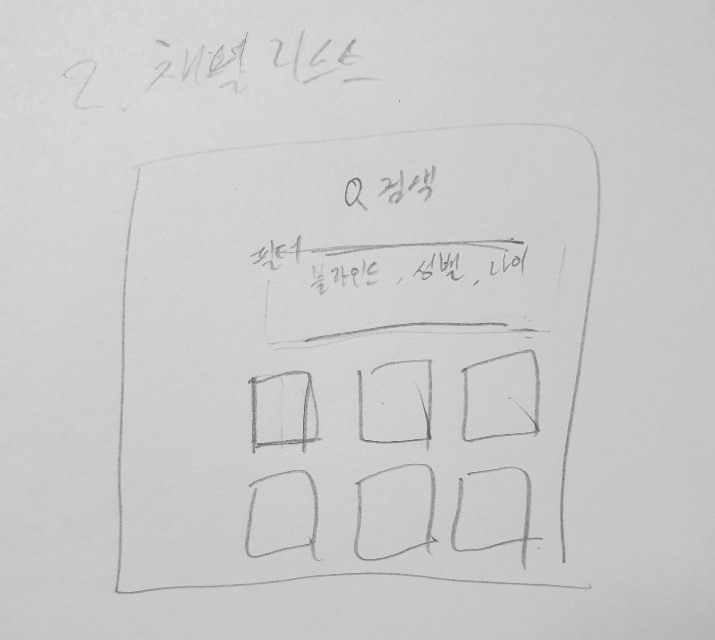 2. 채널 리스트
Q 검색
필터
블라인드, 성별, 나이